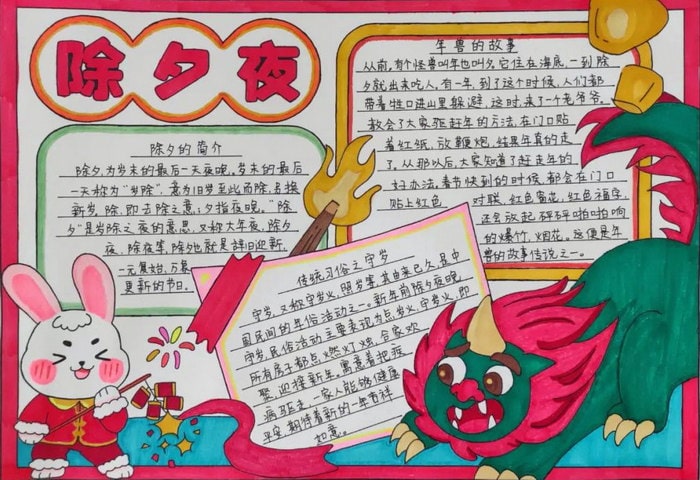 除夕夜
除夕的简介
除夕,为岁末的最后一天夜晚。岁末的最后
一天称为"岁除",意为旧岁至此而除,另换
新岁。除,即去除之意;夕指夜晚。"除
夕"是岁除之夜的意思,又称大年夜、除夕
夜、除夜等,除夕也就是辞旧迎新、
一元复始、万象
更新的节日。
年兽的故事
从前,有个怪兽叫年也叫夕,它住在海底,一到除
夕就出来吃人,有一年,到了这个时候,人们都
带着牲口进山里躲避,这时,来了一个老爷爷。
教会了大家驱赶年的方法,在门口贴
着红纸,放鞭炮,结果年真的走
了。从那以后,大家知道了赶走年的
好办法,春节快到的时候,都会在门口
贴上红色
对联,红色窗花,红色福字,
还会放起砰砰啪啪响
的爆竹,烟花。这便是年
兽的故事传说之一。
传统习俗之守岁
守岁,又称守岁火、照岁等,其由来已久,是中
国民间的年俗活动之一。新年前除夕夜晚
守岁,民俗活动主要表现为点岁火、守岁火,即
所有房子都点燃灯烛,合家欢
聚,迎接新年,寓意着把疾
病驱走,一家人能够健康
平安,期待着新的一年吉祥
如意。